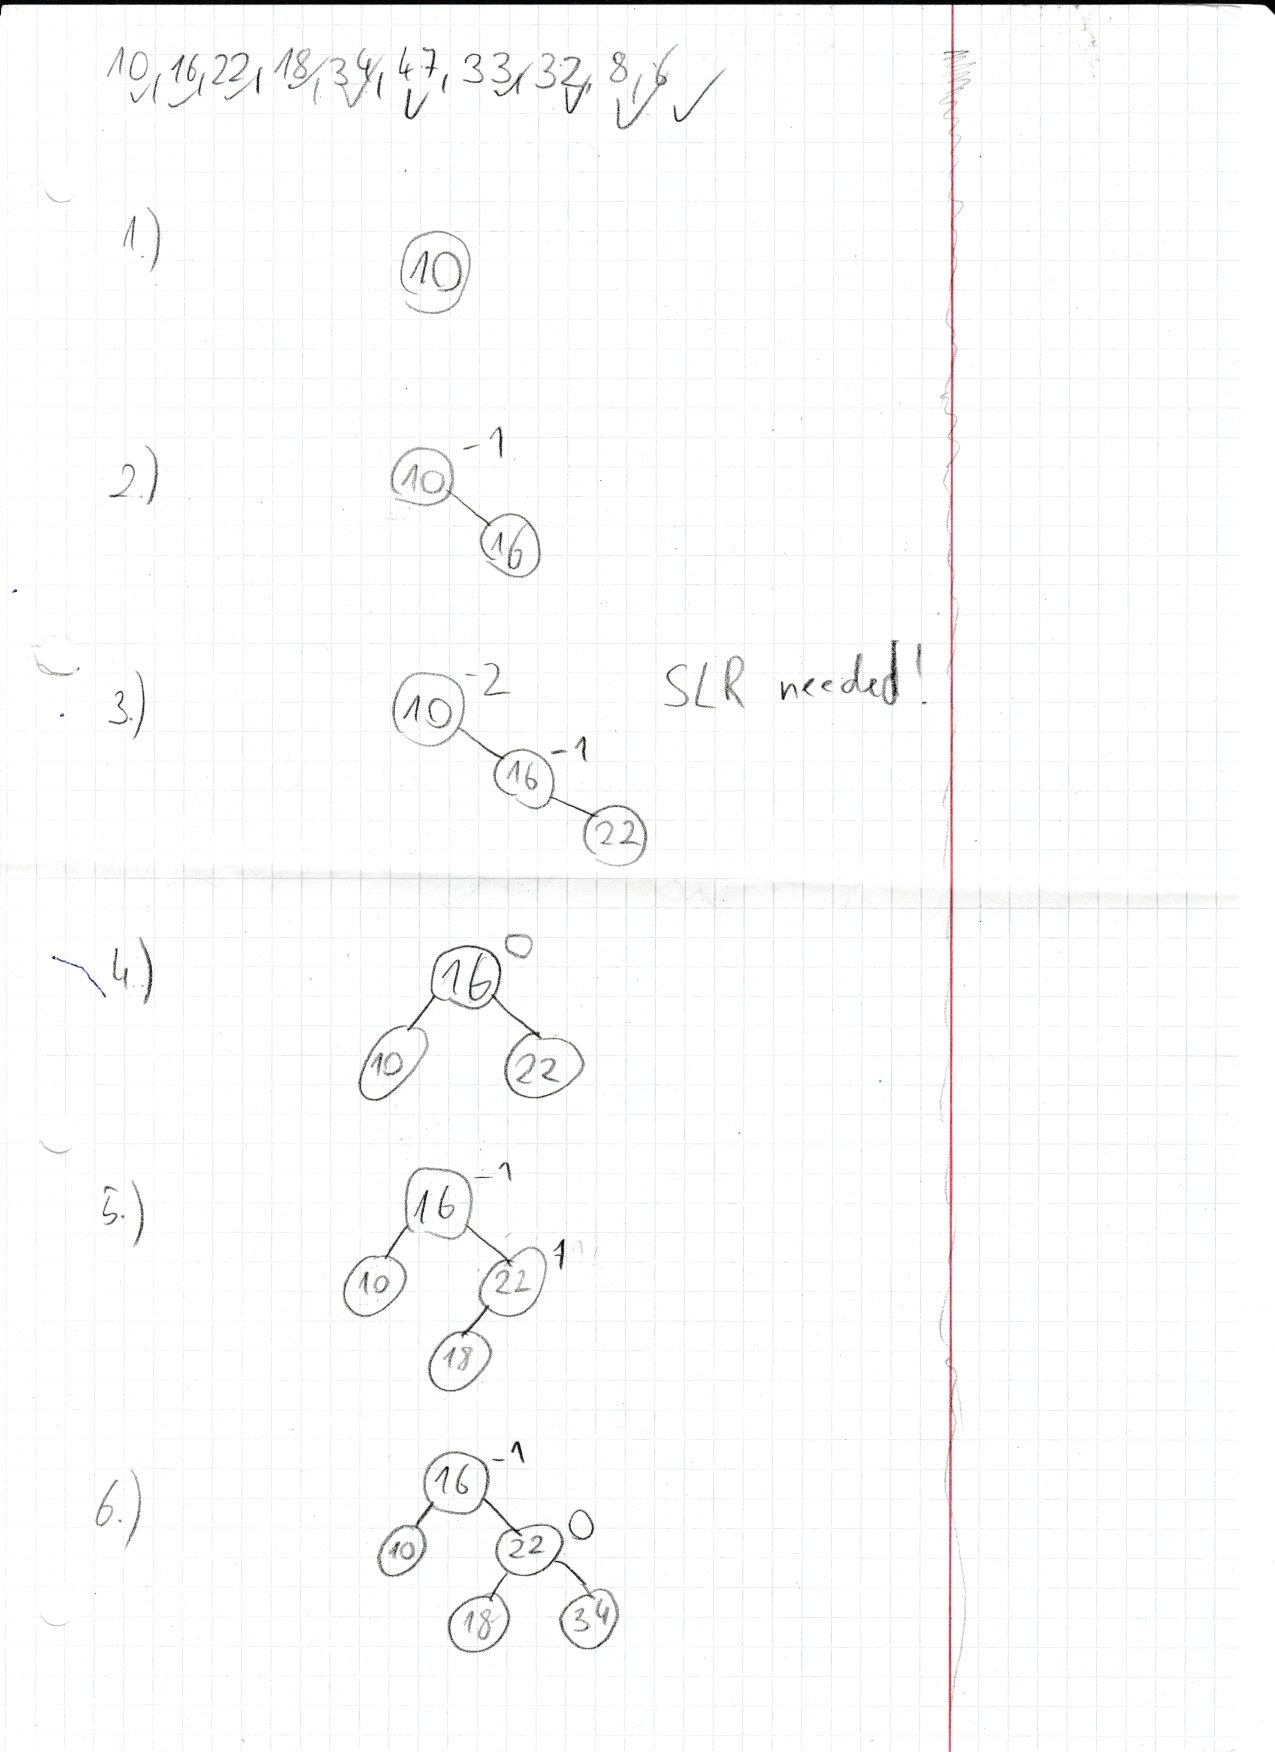 10, 16, 22, 18, 34, 47, 33, 32, 8, 6
1.)
10
2.)
10 -1
16
3.)
10 -2 SLR needed!
16 -1
22
4.)
16 0
10 22
5.)
16 -1
10 22 1
18
6.)
16 -1
10 22 0
18 34